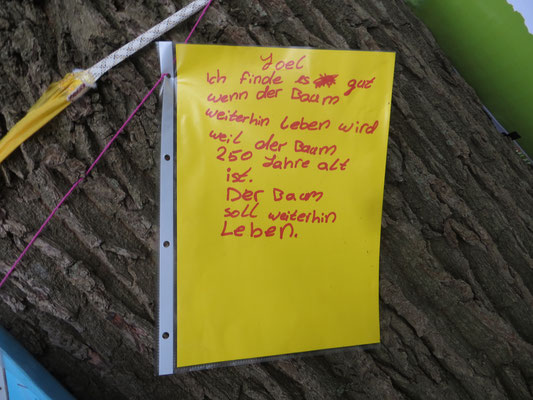 Joel
Ich finde es gut
wenn der Baum
weiterhin Leben wird
weil der Baum
250 Jahre alt
ist.
Der Baum
soll weiterhin
Leben.